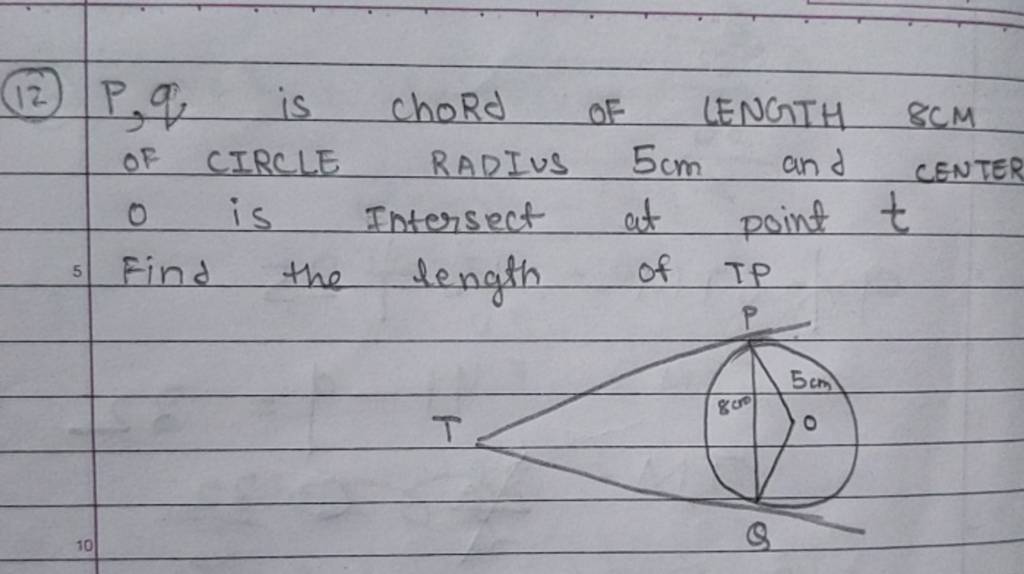 12 P, q is chord OF LENGTH 8CM
OF CIRCLE RADIUS 5cm and CENTER
O is Intersect at point t
5 Find the length of TP
P
5cm
8cm
T
O
Q
10